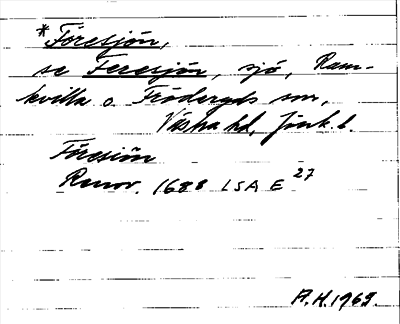 *Föresjön,
se Feresjön, sjö, Ram-
kvilla o. Fröderyds snr,
Västra hd, Jönk. l.
Föresiön
Renov. 1688 LSA E 27
A.H. 1969.